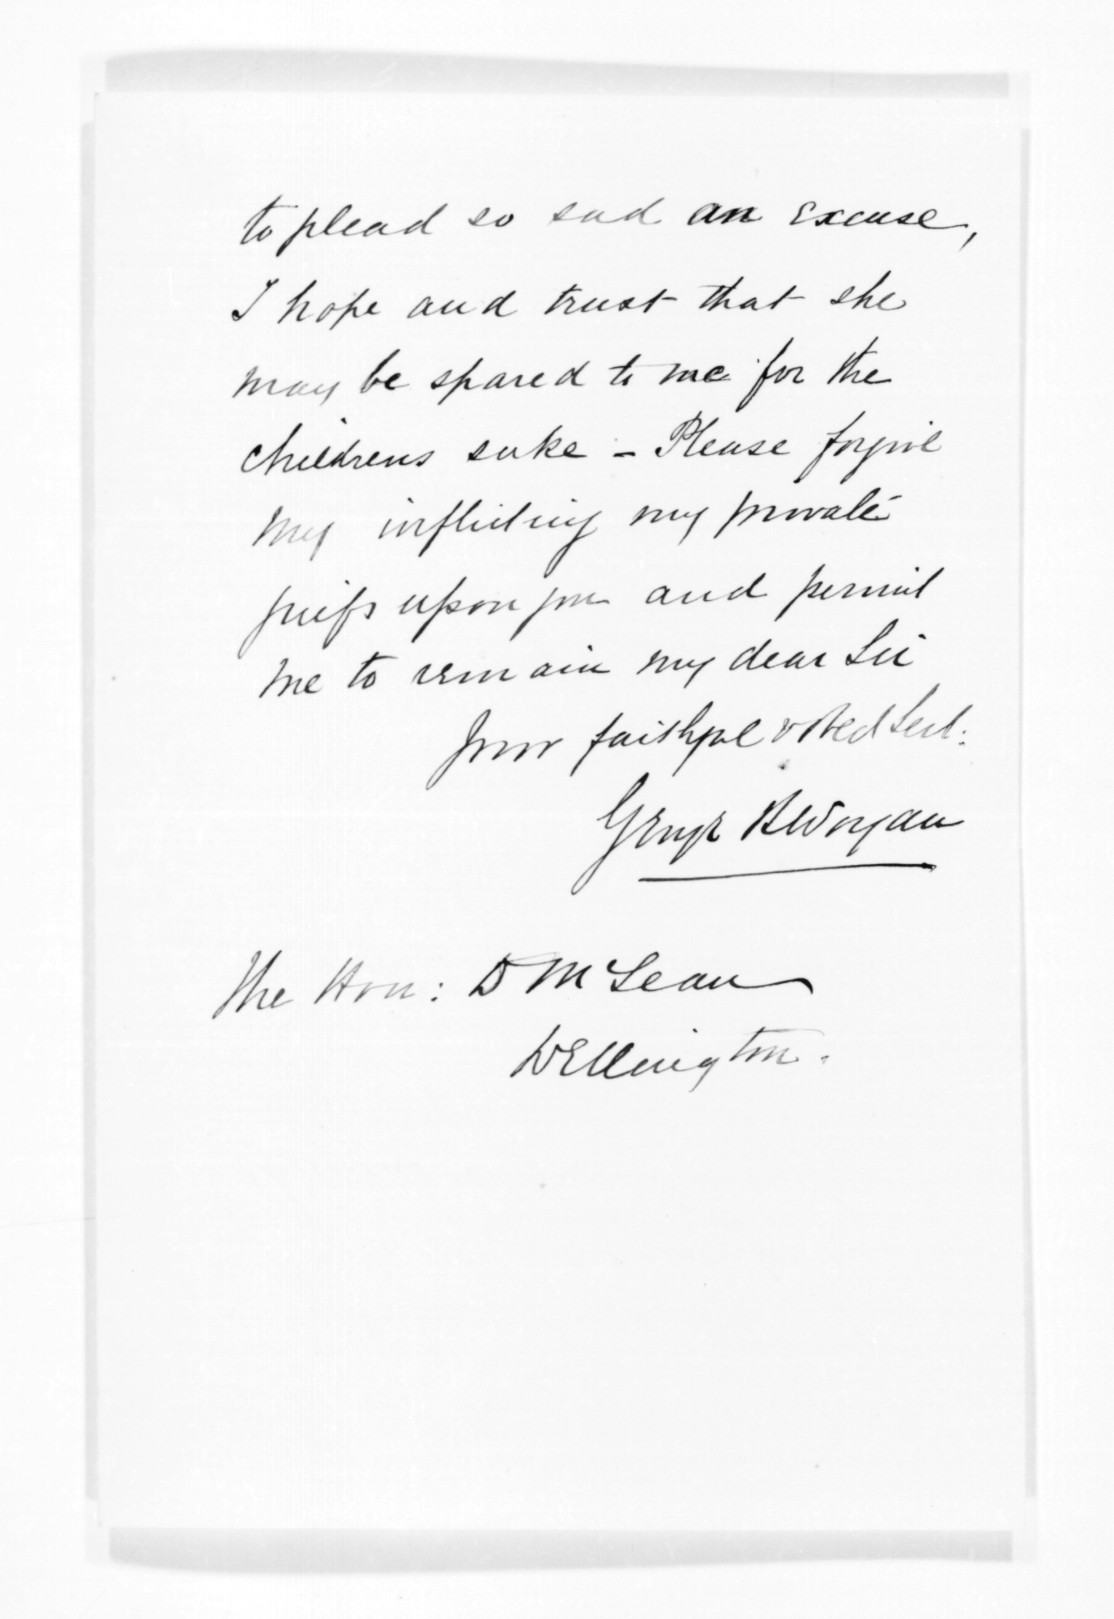 to plead so sad an excuse,
I hope and trust that she
may be spared to me for the
childrens sake – Please forgive
my inflicting my private
griefs upon you and permit
me to remain my dear Sir
Your faithful & obed Servt:
George B Worgan
The Hon: D McLean
Wellington.